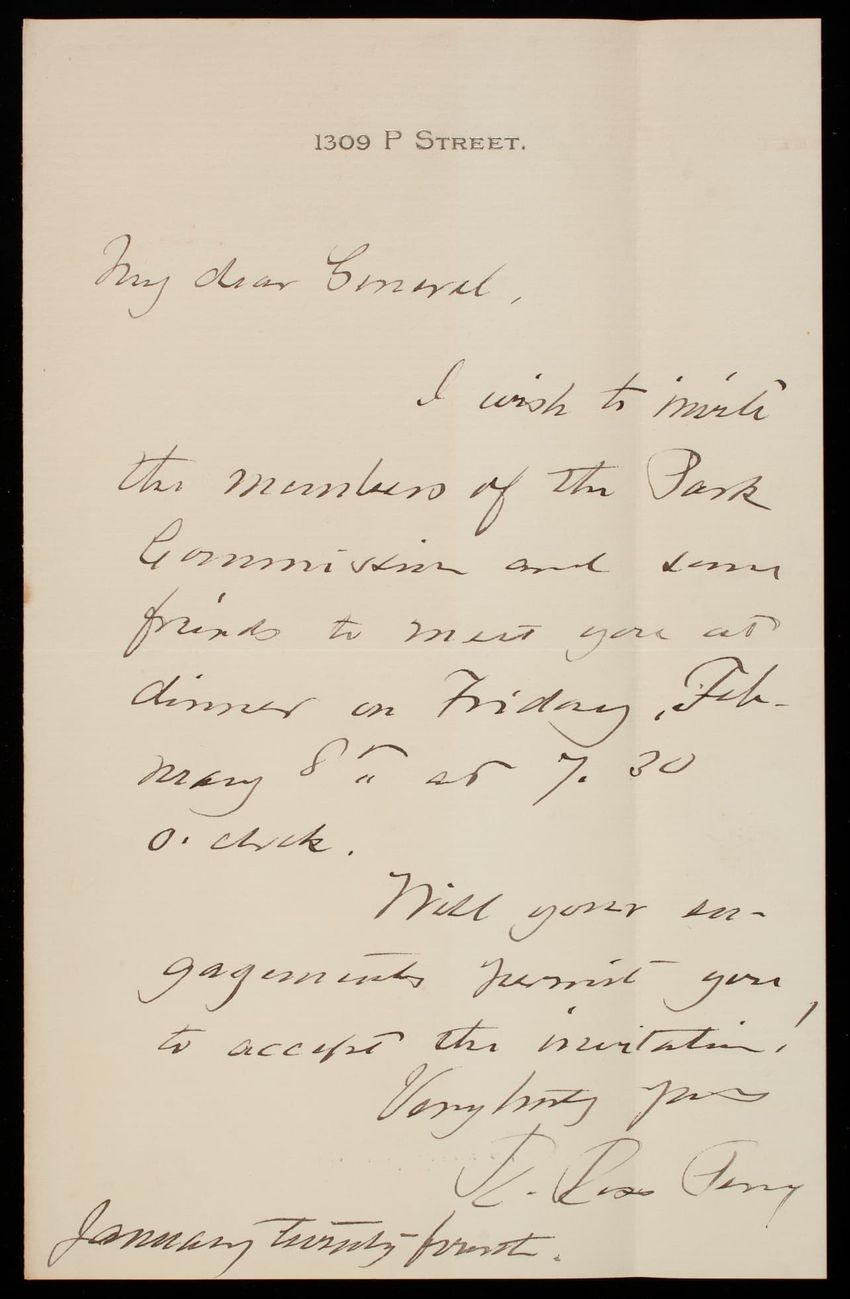 1309 P STREET.
My dear General,
I wish to invite
the members of the Park
Commission and some
friends to meet you at
dinner on Friday, Feb-
ruary 8th at 7.30
o'clock.
Will your en-
gagements permit you
to accept the invitation?
Very truly yours
R. Ross Perry
January twenty-fourth.